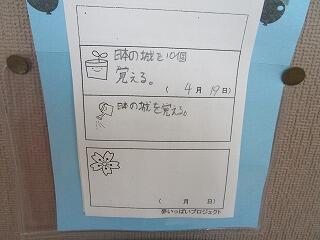 日本の城を10個
覚える。
( 4月 19日)
日本の城を覚え
( 月 日)
夢いっぱいプロジェクト